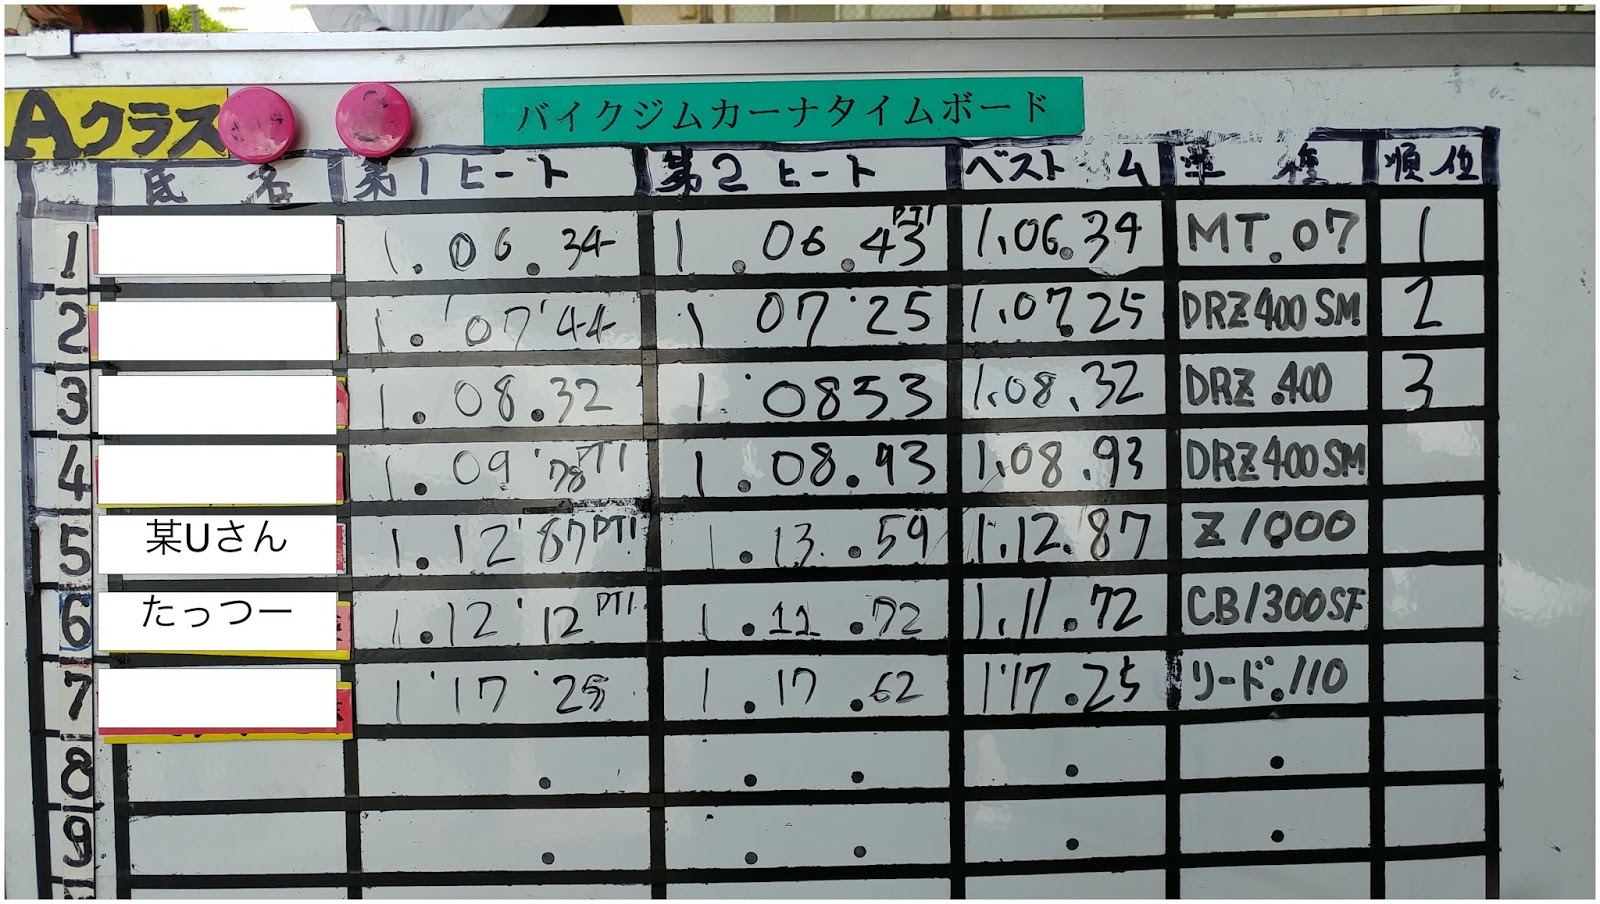 Aクラス
バイクジムカーナタイムボード
氏 名 第1ヒート 第2ヒート ベスト ム 車 種 順位
1 1. 06.34 1. 06.43 PT1 1.06.34 MT.07 1
2 1. '07'44 1 07'25 1.07.25 DRZ400SM 2
3 1. 08.32 1 '0853 1.08.32 DRZ.400 3
4 1. 09'78 PT1 1. 08.93 1.08.93 DRZ400SM
5 某Uさん 1.12'87 PT1 1.13.59 1.12.87 Z1000
6 たっつー 1.12'12 PT1 1.11.72 1.11.72 CB1300SF
7 1'17 25 1.17.62 1'17.25 リード.110
8
9